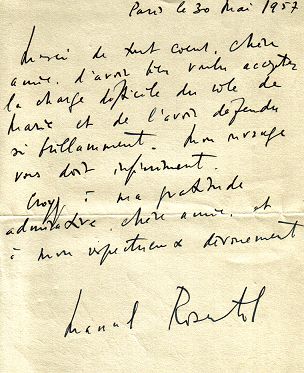 Paris le 30 Mai 1957
Merci de tout coeur, chère
amie, d'avoir bien voulu accepter
la charge difficile du rôle de
Marie et de l'avoir défendu
si brillamment. Mon ouvrage
vous doit infiniment.
Croyez à ma gratitude
admirative, chère amie, et
à mon respectueux dévouement
Manuel Rosenthal